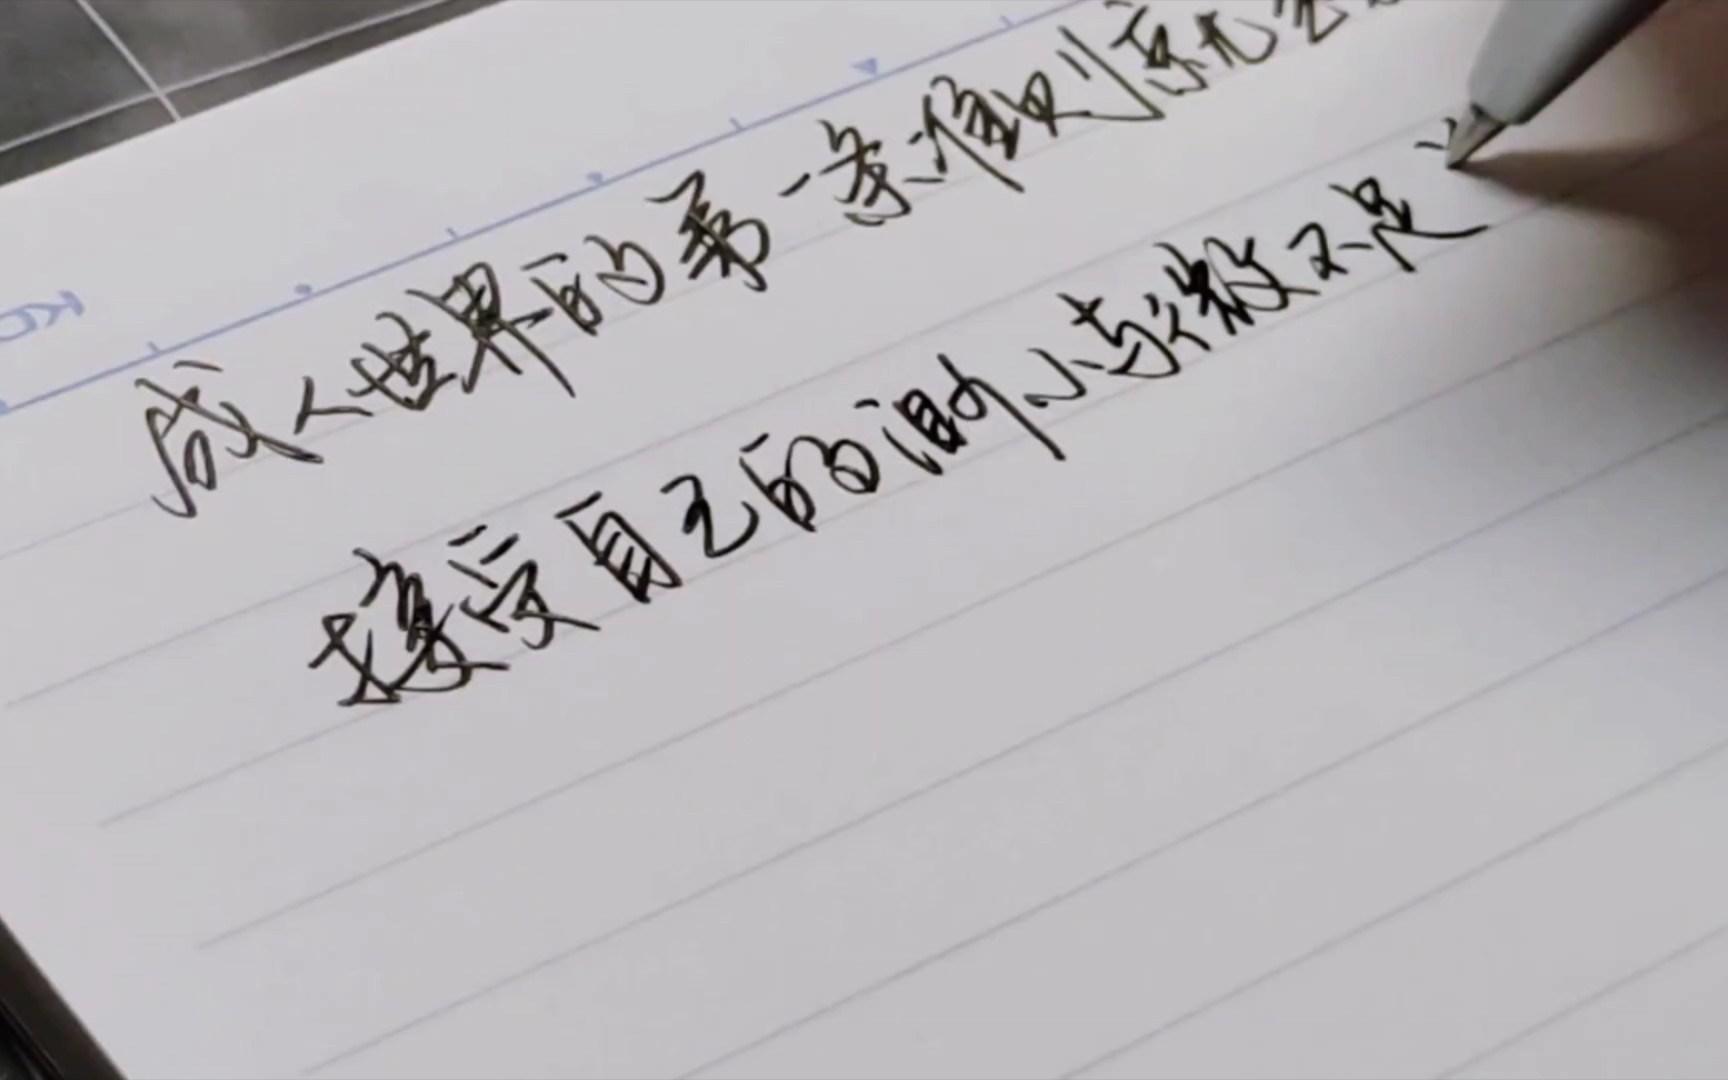 成人世界的第一条准则就
接受自己的渺小与微不足